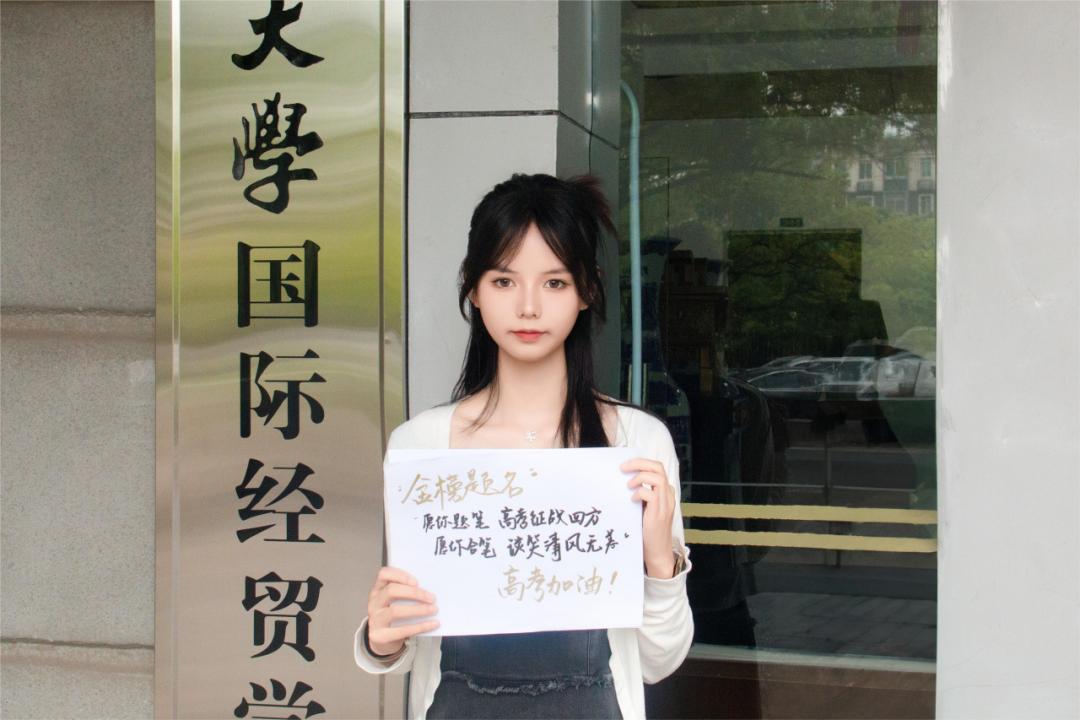 大學国际经贸学
“金榜题名”
“愿你题笔 高考征战四方
愿你合笔 谈笑清风无恙”
高考加油！